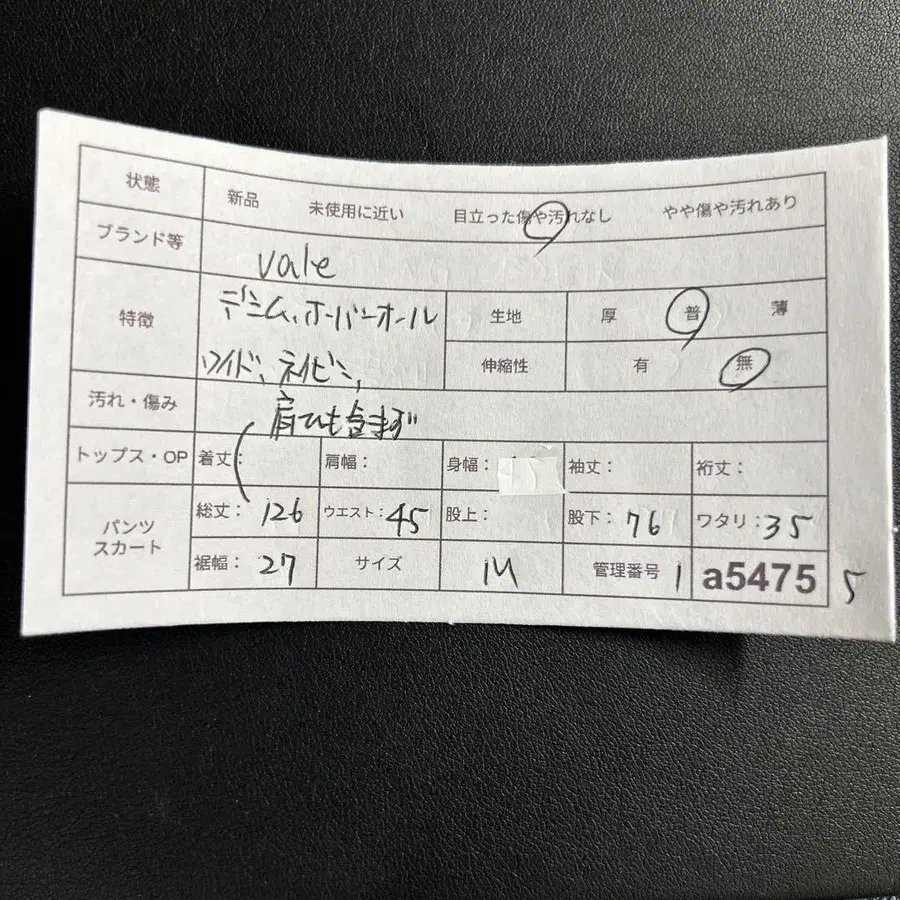 状態 新品 未使用に近い 目立った傷や汚れなし やや傷や汚れあり
ブランド等 vale
特徴 デニム、オーバーオール 生地 厚 普 薄
ワイド、ネイビー、 伸縮性 有 無
汚れ・傷み 肩ひも含まず
トップス・OP 着丈: 肩幅: 身幅: 袖丈: 裄丈:
パンツ スカート 総丈: 126 ウエスト: 45 股上: 股下: 76 ワタリ: 35
裾幅: 27 サイズ M 管理番号 1 a5475 5